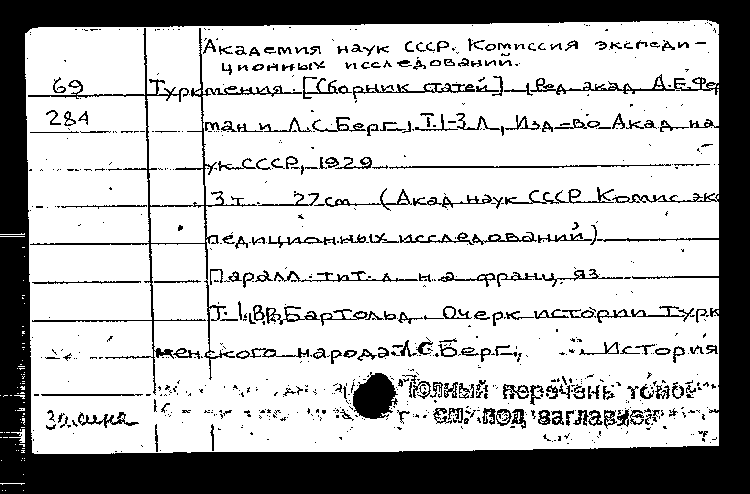 Академия наук СССР. Комиссия экспеди-
ционных исследований.
69 Туркмения. [Сборник статей], Ред. акад А.Е.Фер
284 ман и Л.С.Берг, Т.1-3 Л, Изд-во Акад на
ук СССР, 1929
3т. 27см (Акад наук СССР Комис эк
педиционных исследований)
Паралл. тит. л. на франц, яз
Т. 1, В.В.Бартольд. Очерк истории Турк
менского народа Л.С.Берг, История
Полный перечень томов
см. под заглавием